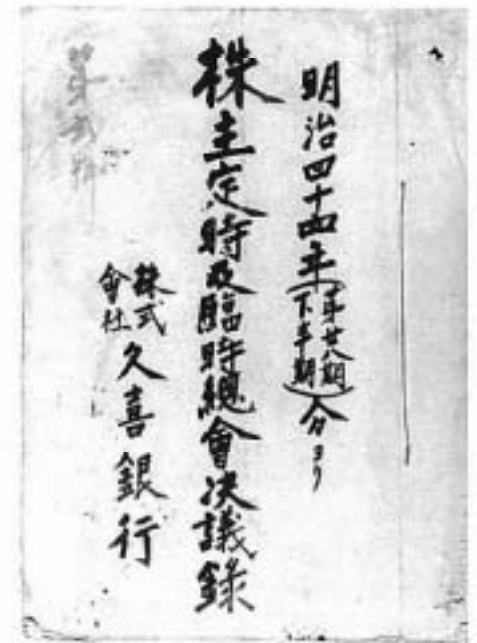 明治四十四年(第廿八期下半期)分ヨリ
株主定時及臨時總會决議錄
株式會社久喜銀行